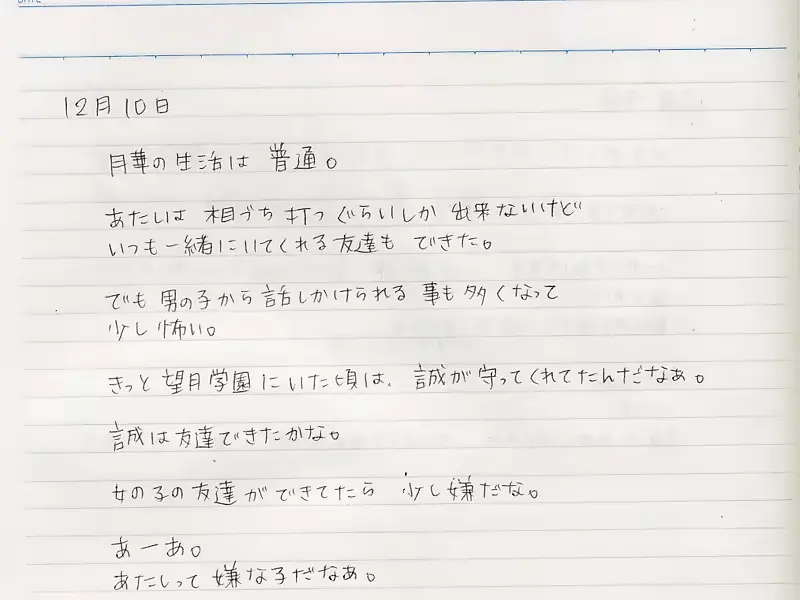 DATE
12月10日
月華の生活は 普通。
あたしは 相づち 打つ ぐらいしか 出来ないけど
いつも一緒にいてくれる友達も できた。
でも 男の子から 話しかけられる 事も 多くなって
少し 怖い。
きっと 望月学園 にいた頃は、 誠が 守ってくれてたんだなぁ。
誠は友達できたかな。
女の子の友達ができてたら 少し嫌だな。
あーあ。
あたしって 嫌な子だなあ。